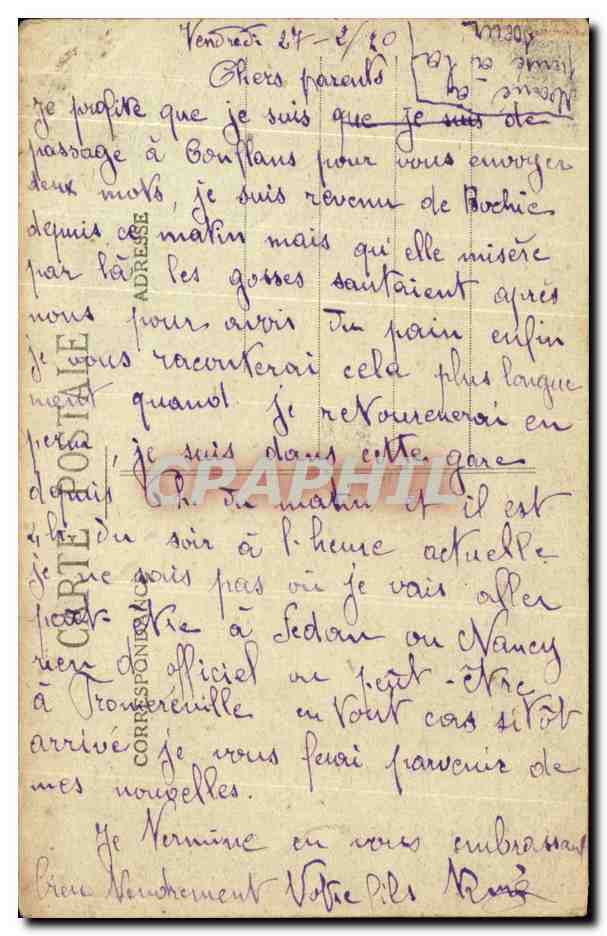 Vendredi 27-2/20
Chers parents
je profite que je suis que je suis de
passage à Conflans pour vous envoyer
deux mots, je suis revenu de Bochie
depuis ce matin mais qu'elle misère
par là les gosses sautaient après
nous pour avoir du pain enfin
je vous raconterai cela plus longue
ment quand je retournerai en
perm, je suis dans cette gare
depuis h. du matin et il est
4h. du soir à l'heure actuelle
je ne sais pas où je vais aller
peut-être à Sedan ou Nancy
rien d'officiel ou peut-être
à Troncréville en tout cas sitôt
arrivé je vous ferai parvenir de
mes nouvelles.
Je termine en vous embrassant
bien tendrement Votre fils
à
à la
soeur
CARTE POSTALE
CORRESPONDANCE
ADRESSE
CPAPHIL